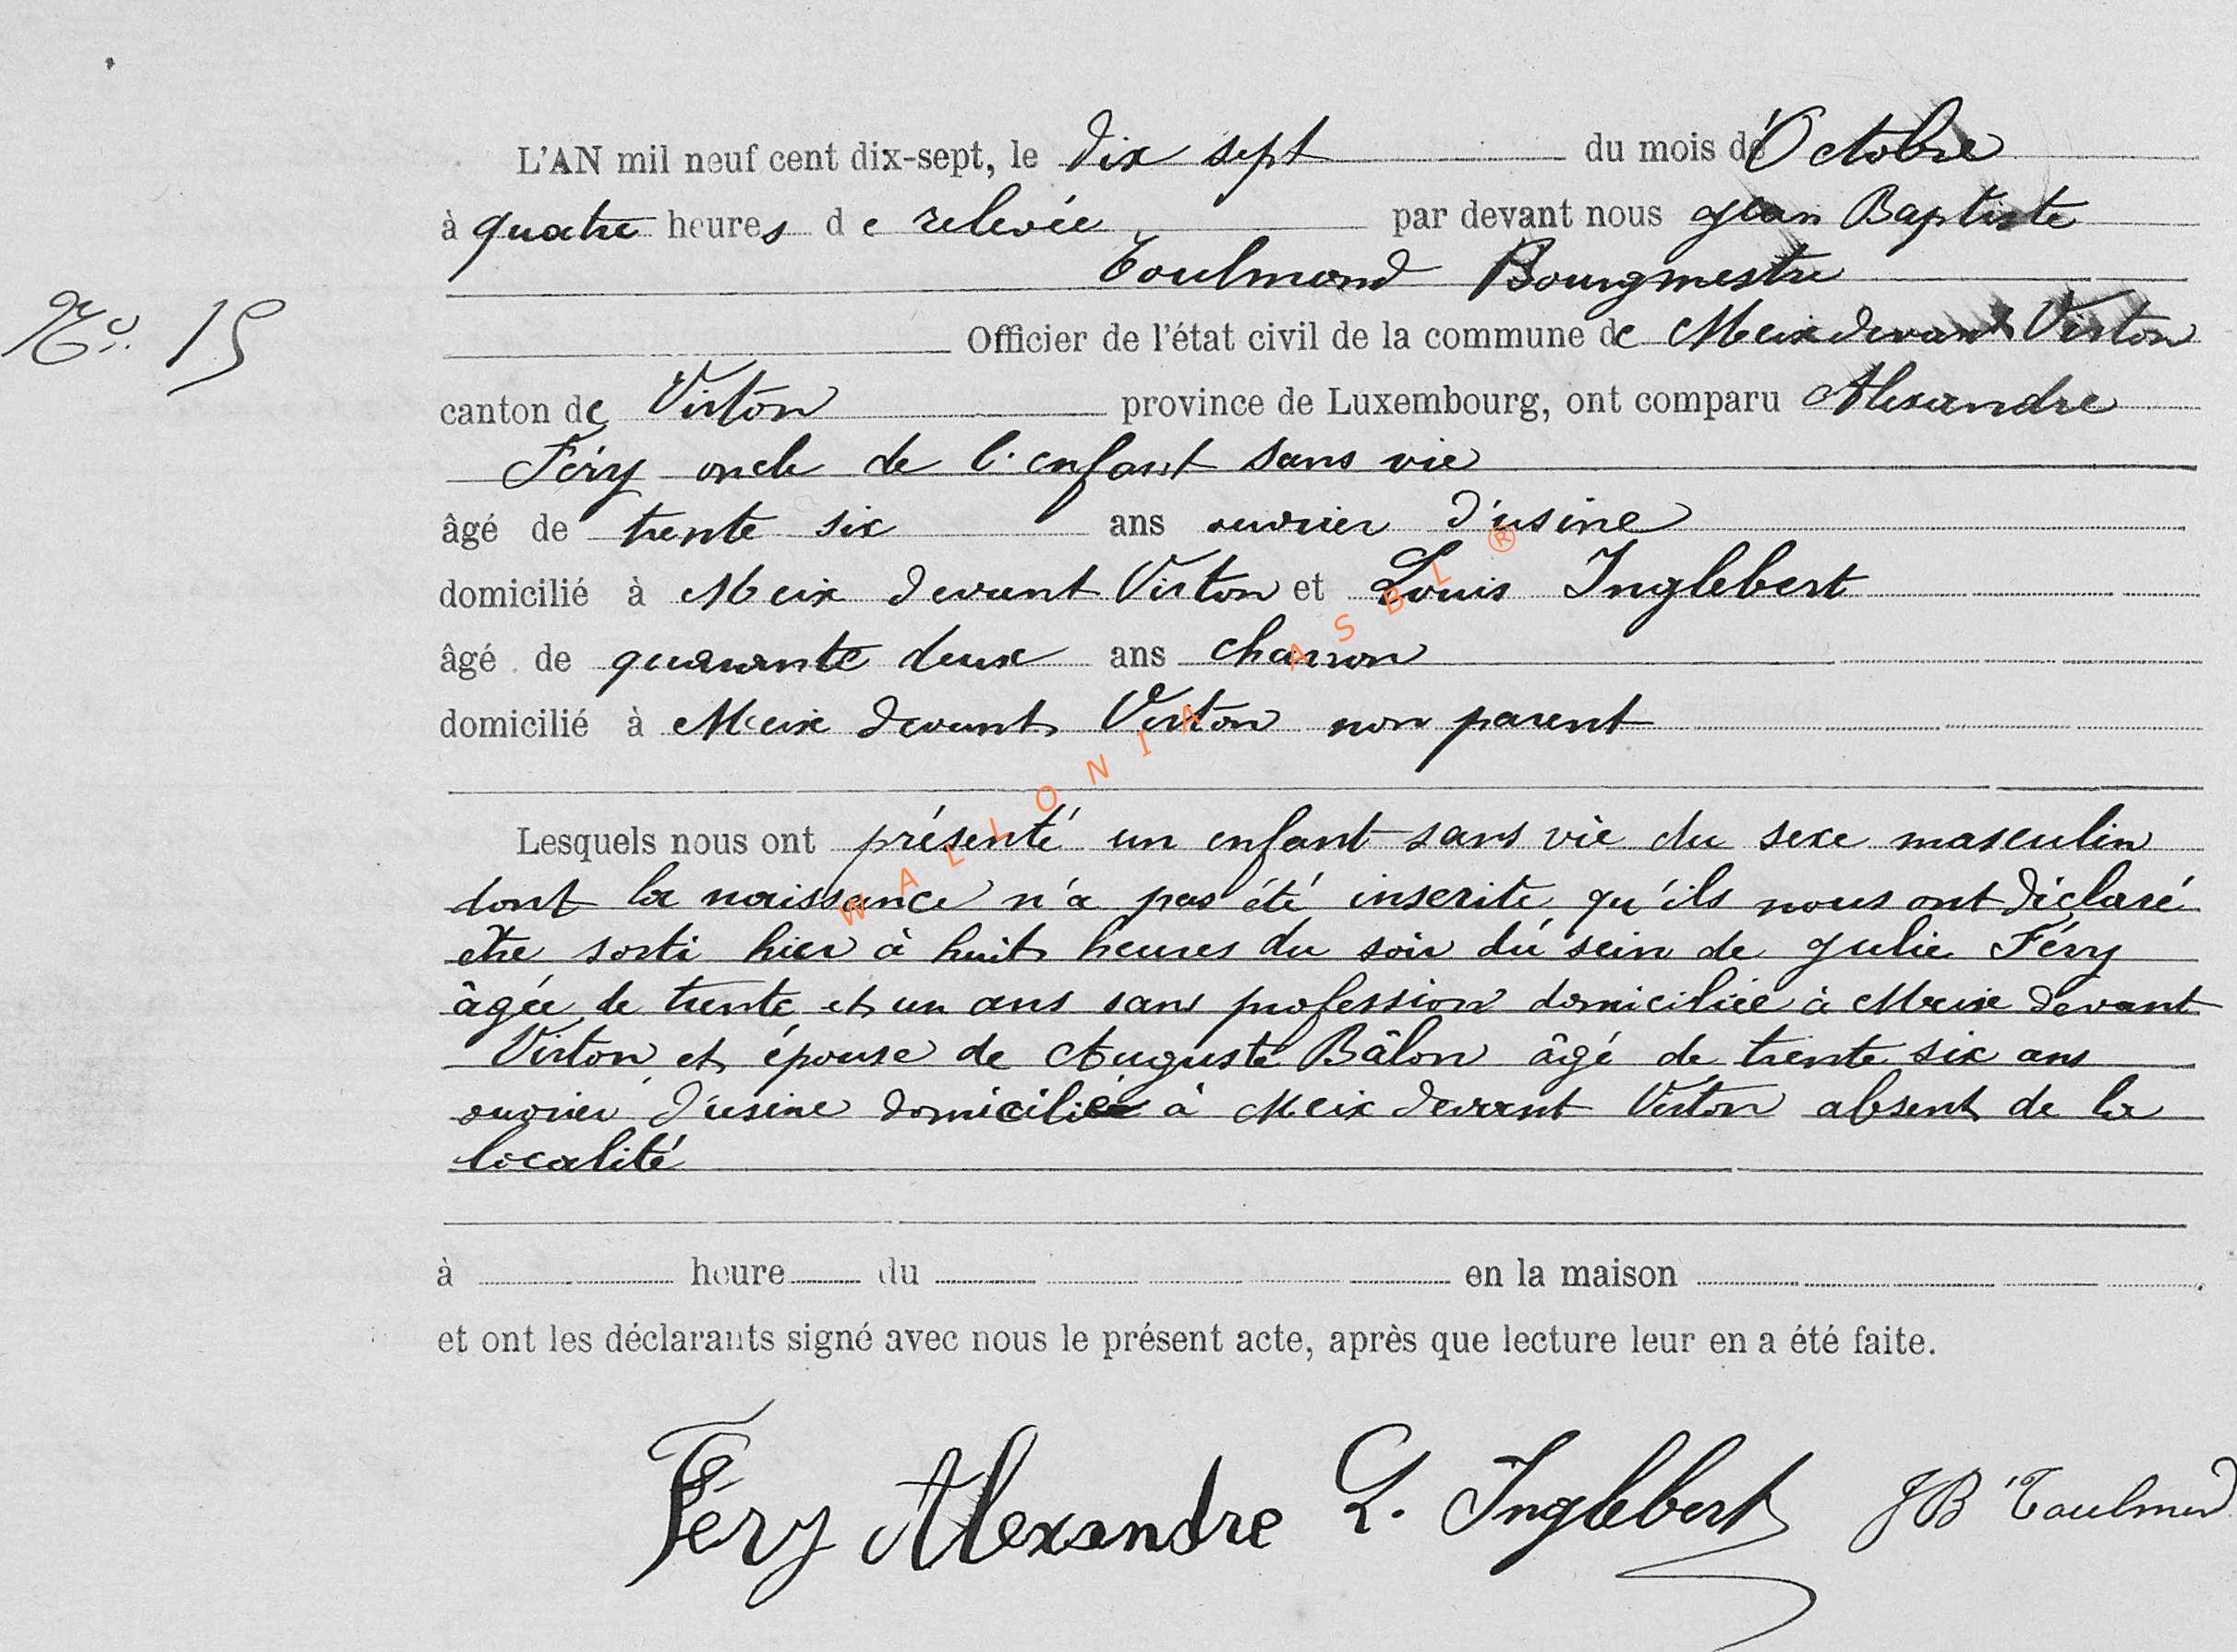 L'AN mil neuf cent dix-sept, le dix sept du mois de Octobre
à quatre heures de relevée par devant nous Jean Baptiste
Toulmond Bourgmestre
No. 15
Officier de l'état civil de la commune de Meix devant Virton
canton de Virton province de Luxembourg, ont comparu Alexandre
Féry oncle de l'enfant sans vie
âgé de trente six ans ouvrier d'usine
domicilié à Meix devant Virton et Louis Inglebert
âgé de quarante deux ans charron
domicilié à Meix devant Virton non parent
WALLONIA ASBL ®
Lesquels nous ont présenté un enfant sans vie du sexe masculin
dont la naissance n'a pas été inscrite qu'ils nous ont déclaré
etre sorti hier à huit heures du soir du sein de Julie Féry
âgée de trente et un ans sans profession domiciliée à Meix devant
Virton et épouse de Auguste Bâlon âgé de trente six ans
ouvrier d'usine domicilié à Meix devant Virton absent de la
localité
à heure du en la maison
et ont les déclarants signé avec nous le présent acte, après que lecture leur en a été faite.
Féry Alexandre L. Inglebert JB Toulmond